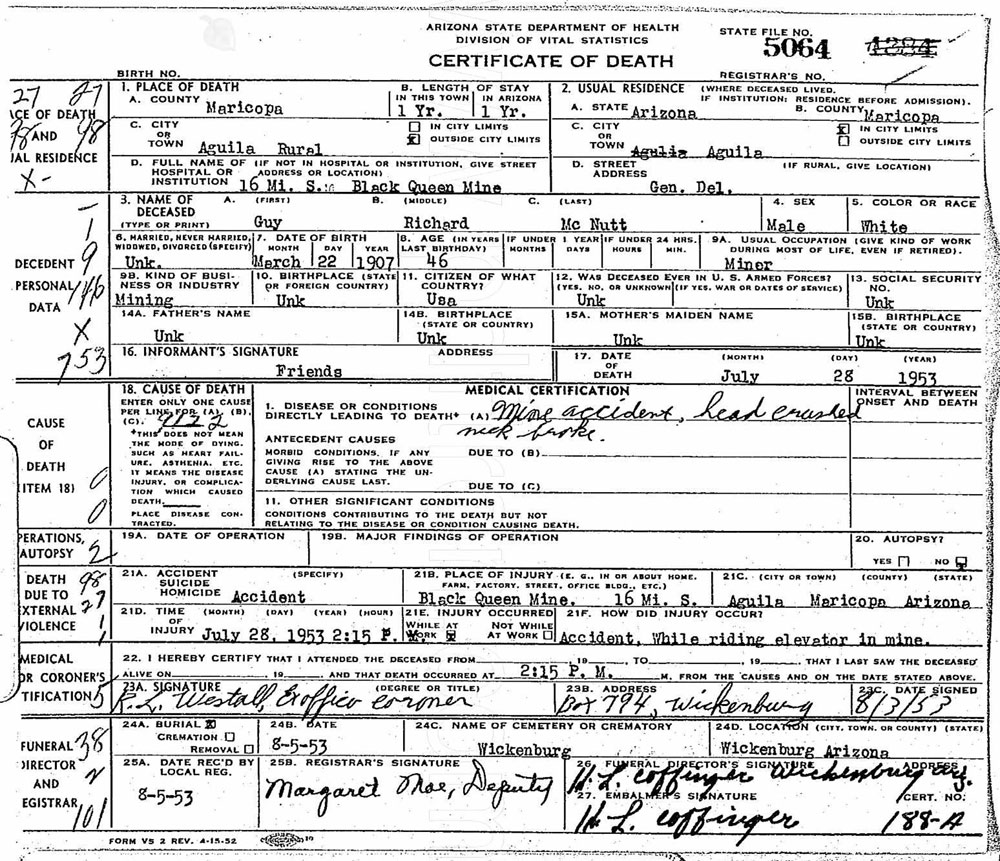 ARIZONA STATE DEPARTMENT OF HEALTH
DIVISION OF VITAL STATISTICS
CERTIFICATE OF DEATH
STATE FILE NO.
5064 4284
BIRTH NO.
REGISTRAR'S NO.
27 27
ACE OF DEATH
98 AND 98
UAL RESIDENCE
X-
1. PLACE OF DEATH
A. COUNTY Maricopa
B. LENGTH OF STAY
IN THIS TOWN IN ARIZONA
1 Yr. 1 Yr.
2. USUAL RESIDENCE (WHERE DECEASED LIVED.
IF INSTITUTION: RESIDENCE BEFORE ADMISSION).
A. STATE Arizona B. COUNTY Maricopa
C. CITY OR TOWN Aguila Rural
IN CITY LIMITS
OUTSIDE CITY LIMITS
C. CITY OR TOWN Agulia Aguila
IN CITY LIMITS
OUTSIDE CITY LIMITS
D. FULL NAME OF (IF NOT IN HOSPITAL OR INSTITUTION, GIVE STREET
HOSPITAL OR ADDRESS OR LOCATION)
INSTITUTION 16 Mi. S. Black Queen Mine
D. STREET ADDRESS (IF RURAL, GIVE LOCATION)
Gen. Del.
3. NAME OF DECEASED
(TYPE OR PRINT)
A. (FIRST) B. (MIDDLE) C. (LAST)
Guy Richard Mc Nutt
4. SEX
Male
5. COLOR OR RACE
White
DECEDENT
PERSONAL
DATA
1
9
146
X
753
6. MARRIED, NEVER MARRIED,
WIDOWED, DIVORCED (SPECIFY)
Unk.
7. DATE OF BIRTH
MONTH DAY YEAR
March 22 1907
8. AGE (IN YEARS
LAST BIRTHDAY)
46
IF UNDER 1 YEAR
MONTHS DAYS
IF UNDER 24 HRS.
HOURS MIN.
9A. USUAL OCCUPATION (GIVE KIND OF WORK
DURING MOST OF LIFE, EVEN IF RETIRED).
Miner
9B. KIND OF BUSI-
NESS OR INDUSTRY
Mining
10. BIRTHPLACE (STATE
OR FOREIGN COUNTRY)
Unk
11. CITIZEN OF WHAT
COUNTRY?
Usa
12. WAS DECEASED EVER IN U. S. ARMED FORCES?
(YES, NO, OR UNKNOWN) (IF YES, WAR OR DATES OF SERVICE)
Unk
13. SOCIAL SECURITY
NO.
Unk
14A. FATHER'S NAME
Unk
14B. BIRTHPLACE
(STATE OR COUNTRY)
Unk
15A. MOTHER'S MAIDEN NAME
Unk
15B. BIRTHPLACE
(STATE OR COUNTRY)
Unk
16. INFORMANT'S SIGNATURE ADDRESS
Friends
17. DATE OF DEATH
(MONTH) (DAY) (YEAR)
July 28 1953
CAUSE
OF
DEATH
(ITEM 18)
0
0
18. CAUSE OF DEATH
ENTER ONLY ONE CAUSE
PER LINE FOR (A), (B),
(C). 9122
*THIS DOES NOT MEAN
THE MODE OF DYING,
SUCH AS HEART FAIL-
URE, ASTHENIA, ETC.
IT MEANS THE DISEASE
INJURY, OR COMPLICA-
TION WHICH CAUSED
DEATH.
PLACE DISEASE CON-
TRACTED.
MEDICAL CERTIFICATION
INTERVAL BETWEEN
ONSET AND DEATH
1. DISEASE OR CONDITIONS
DIRECTLY LEADING TO DEATH* (A) Mine accident, head crushed
neck broke.
ANTECEDENT CAUSES
MORBID CONDITIONS, IF ANY DUE TO (B)
GIVING RISE TO THE ABOVE
CAUSE (A) STATING THE UN-
DERLYING CAUSE LAST. DUE TO (C)
11. OTHER SIGNIFICANT CONDITIONS
CONDITIONS CONTRIBUTING TO THE DEATH BUT NOT
RELATING TO THE DISEASE OR CONDITION CAUSING DEATH.
PERATIONS,
AUTOPSY 2
19A. DATE OF OPERATION
19B. MAJOR FINDINGS OF OPERATION
20. AUTOPSY?
YES NO
DEATH 98
DUE TO
EXTERNAL 27
VIOLENCE 1
21A. ACCIDENT (SPECIFY)
SUICIDE
HOMICIDE Accident
21B. PLACE OF INJURY (E. G., IN OR ABOUT HOME,
FARM, FACTORY, STREET, OFFICE BLDG., ETC.)
Black Queen Mine. 16 Mi. S.
21C. (CITY OR TOWN) (COUNTY) (STATE)
Aguila Maricopa Arizona
21D. TIME (MONTH) (DAY) (YEAR) (HOUR)
OF INJURY July 28, 1953 2:15 P. M.
21E. INJURY OCCURRED
WHILE AT WORK NOT WHILE AT WORK
21F. HOW DID INJURY OCCUR?
Accident, While riding elevator in mine.
MEDICAL
OR CORONER'S
TIFICATION 5
22. I HEREBY CERTIFY THAT I ATTENDED THE DECEASED FROM 19 , TO , 19 , THAT I LAST SAW THE DECEASED
ALIVE ON , 19 , AND THAT DEATH OCCURRED AT 2:15 P. M. M., FROM THE CAUSES AND ON THE DATE STATED ABOVE.
23A. SIGNATURE (DEGREE OR TITLE)
R. L. Westall, Exoffico coroner
23B. ADDRESS
Box 794, Wickenburg
23C. DATE SIGNED
8/3/53
FUNERAL 38
DIRECTOR
AND 2
EGISTRAR 101
24A. BURIAL
CREMATION
REMOVAL
24B. DATE
8-5-53
24C. NAME OF CEMETERY OR CREMATORY
Wickenburg
24D. LOCATION (CITY, TOWN, OR COUNTY) (STATE)
Wickenburg Arizona
25A. DATE REC'D BY
LOCAL REG.
8-5-53
25B. REGISTRAR'S SIGNATURE
Margaret Moe, Deputy
26. FUNERAL DIRECTOR'S SIGNATURE ADDRESS
H. L. Coffinger Wickenburg Ariz.
27. EMBALMER'S SIGNATURE CERT. NO.
H. L. Coffinger 188-A
FORM VS 2 REV. 4-15-52